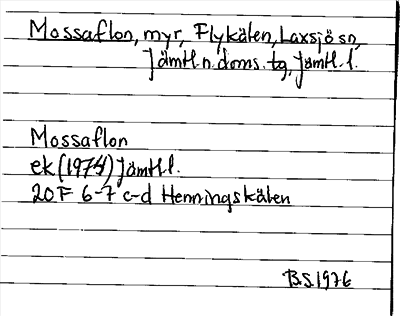 Mossaflon, myr, Flykälen, Laxsjö sn,
Jämtl.n.doms. tg, Jämtl.l.
Mossaflon
ek (1974) Jämtl.l.
20F 6-7 c-d Henningskälen
B.S.1976